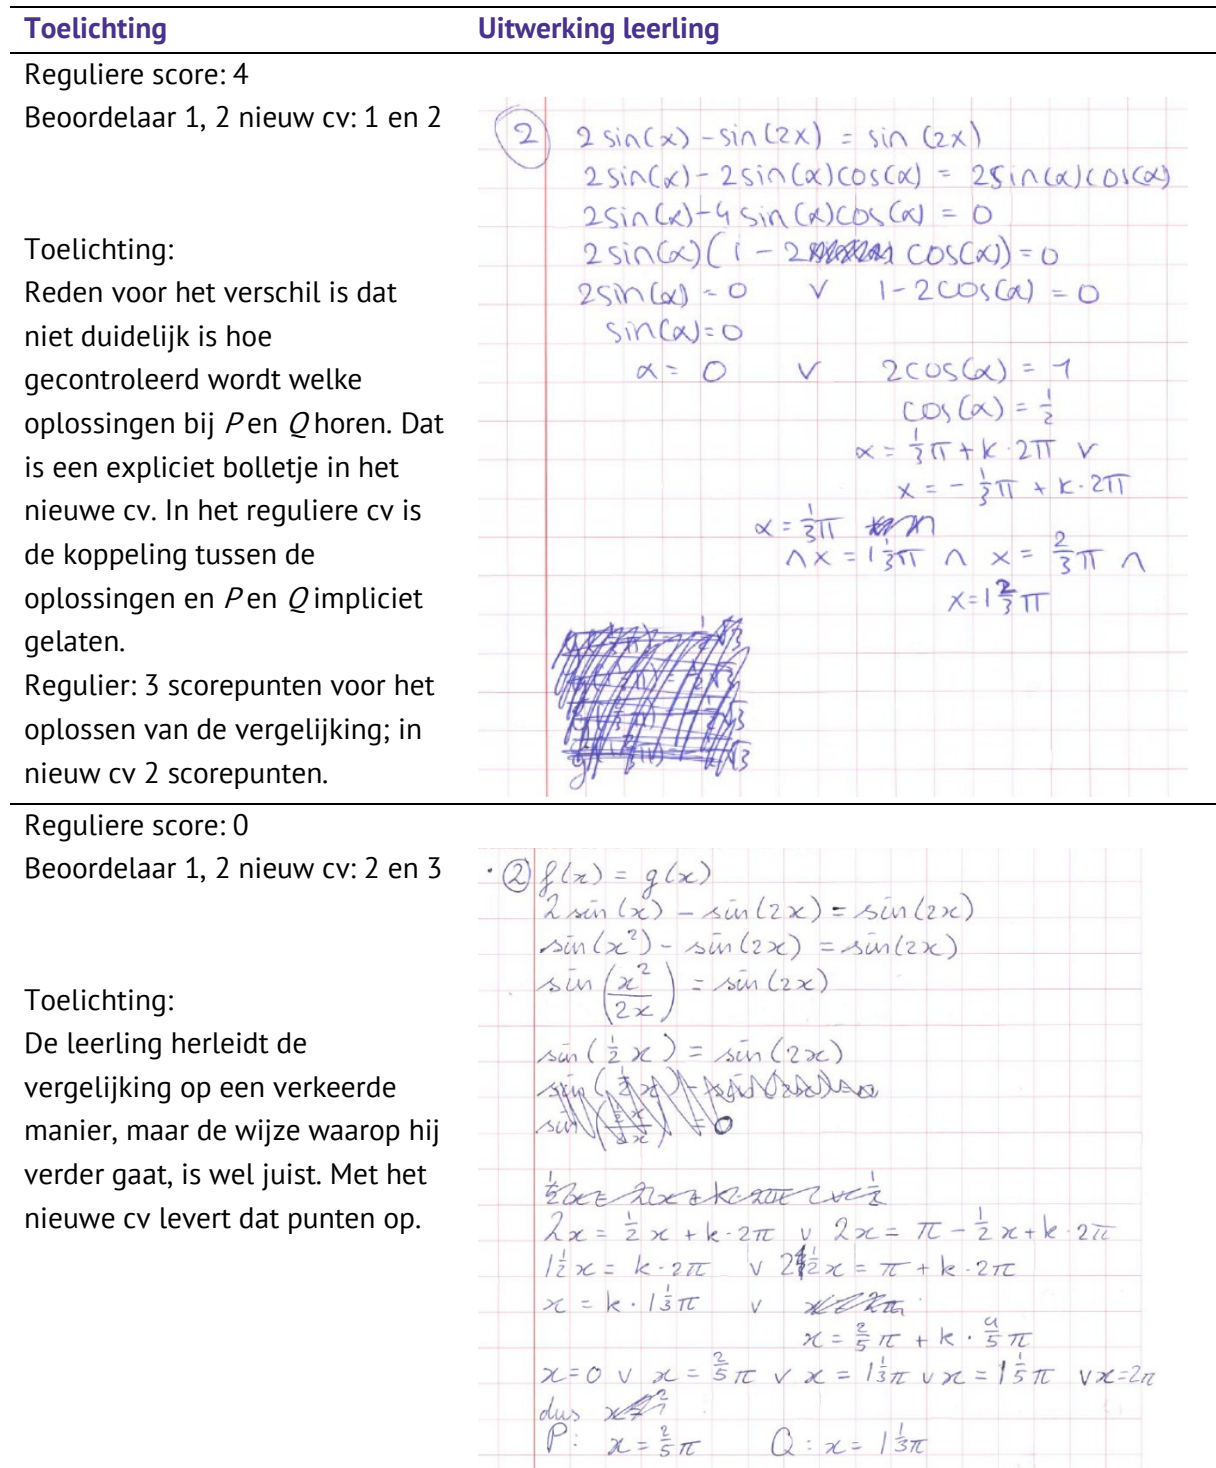 Toelichting Uitwerking leerling
Reguliere score: 4
Beoordelaar 1, 2 nieuw cv: 1 en 2
Toelichting:
Reden voor het verschil is dat
niet duidelijk is hoe
gecontroleerd wordt welke
oplossingen bij P en Q horen. Dat
is een expliciet bolletje in het
nieuwe cv. In het reguliere cv is
de koppeling tussen de
oplossingen en P en Q impliciet
gelaten.
Regulier: 3 scorepunten voor het
oplossen van de vergelijking; in
nieuw cv 2 scorepunten.
2 2 sin(x) - sin(2x) = sin(2x)
2 sin(α) - 2 sin(α)cos(α) = 2 sin(α)cos(α)
2 sin(α) - 4 sin(α)cos(α) = 0
2 sin(α)(1 - 2 cos(α)) = 0
2 sin(α) = 0 ∨ 1 - 2cos(α) = 0
sin(α) = 0
α = 0 ∨ 2cos(α) = 1
cos(α) = 1/2
α = 1/3 π + k · 2π ∨
x = - 1/3 π + k · 2π
α = 1/3 π
∧ x = 1 1/3 π ∧ x = 2/3 π ∧
x = 1 2/3 π
Reguliere score: 0
Beoordelaar 1, 2 nieuw cv: 2 en 3
Toelichting:
De leerling herleidt de
vergelijking op een verkeerde
manier, maar de wijze waarop hij
verder gaat, is wel juist. Met het
nieuwe cv levert dat punten op.
· 2 f(x) = g(x)
2 sin(x) - sin(2x) = sin(2x)
sin(x²) - sin(2x) = sin(2x)
sin(x²/2x) = sin(2x)
sin(1/2 x) = sin(2x)
2x = 1/2 x + k · 2π ∨ 2x = π - 1/2 x + k · 2π
1 1/2 x = k · 2π ∨ 2 1/2 x = π + k · 2π
x = k · 1 1/3 π ∨
x = 2/5 π + k · 4/5 π
x = 0 ∨ x = 2/5 π ∨ x = 1 1/3 π ∨ x = 1 1/5 π ∨ x = 2π
dus
P: x = 2/5 π Q: x = 1 1/3 π